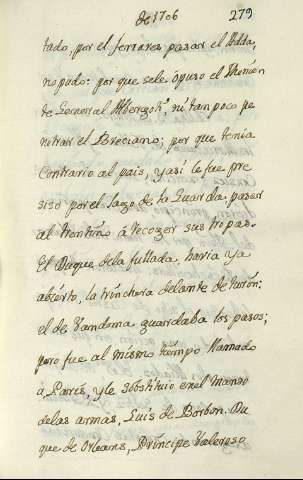 de 1706 279
tado, por el ferrares pasar el Adda,
no pudo: por que se le ôpuso el Thenien
te General Albergoti, ni tan poco pe
netrar el Breciano; por que tenia
Contrario al pais, y asi le fue pre
siso por el Lago de la Guarda, pasar
al trentino â recozer sus tropas.
El Duque de la fullada, havia ya
abierto, la trinchera delante de turin:
el de Vandoma guardaba los pasos;
pero fue al mismo tiempo llamado
â Paris, y le substituio en el mando
de las armas, Luis de Borbon. Du
que de Orleans, Principe Valeroso